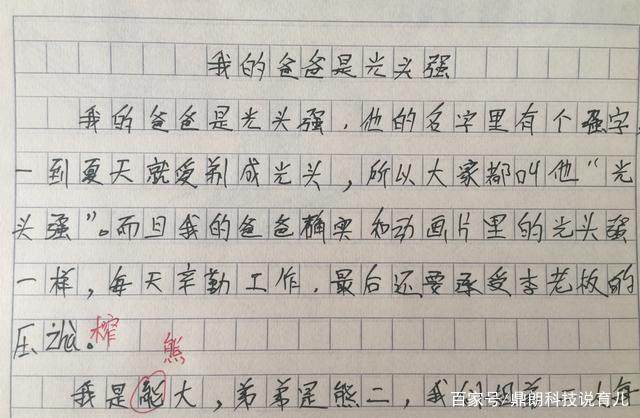 我的爸爸是光头强
我的爸爸是光头强，他的名字里有个强字，
一到夏天就爱剃成光头，所以大家都叫他“光
头强”。而且我的爸爸确实和动画片里的光头强
一样，每天辛勤工作，最后还要承受李老板的
压zhà。榨
熊
我是能大，弟弟是熊二，我们
百家号/鼎朗科技说育儿